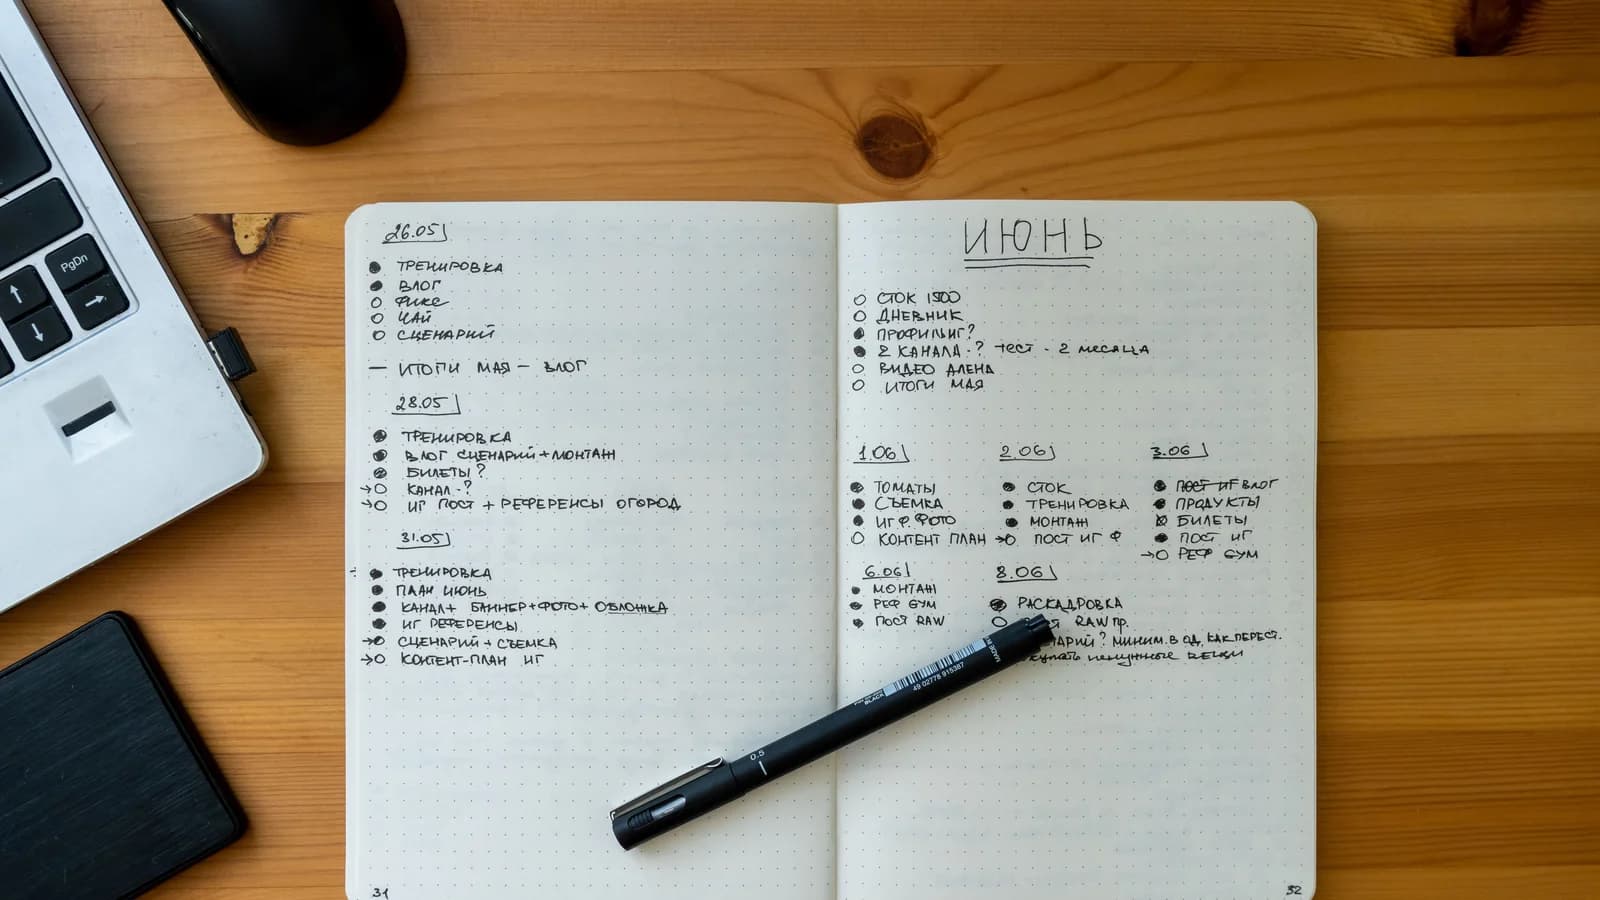 PgDn
26.05
ТРЕНИРОВКА
ВЛОГ
ФИКС
ЧАЙ
СЦЕНАРИЙ
— ИТОГИ МАЯ — ВЛОГ
28.05
ТРЕНИРОВКА
ВЛОГ СЦЕНАРИЙ + МОНТАЖ
БИЛЕТЫ?
→ КАНАЛ - ?
→ ИГ ПОСТ + РЕФЕРЕНСЫ ОГОРОД
31.05
ТРЕНИРОВКА
ПЛАН ИЮНЬ
КАНАЛ + БАННЕР + ФОТО + ОБЛОЖКА
ИГ РЕФЕРЕНСЫ
→ СЦЕНАРИЙ + СЪЕМКА
→ КОНТЕНТ-ПЛАН ИГ
31
ИЮНЬ
СТОК 1500
ДНЕВНИК
ПРОФИЛЬ ИГ?
2 КАНАЛА - ? ТЕСТ - 2 МЕСЯЦА
ВИДЕО АЛЕНА
ИТОГИ МАЯ
1.06
ТОМАТЫ
СЪЕМКА
ИГ Ф. ФОТО
КОНТЕНТ ПЛАН
2.06
СТОК
ТРЕНИРОВКА
МОНТАЖ
→ ПОСТ ИГ Ф
3.06
ПОСТ ИГ ВЛОГ
ПРОДУКТЫ
БИЛЕТЫ
ПОСТ ИГ
→ РЕФ GYM
6.06
МОНТАЖ
РЕФ GYM
ПОСТ RAW
8.06
РАСКАДРОВКА
RAW ПР.
? МИНИМ. В ОД. КАК ПЕРЕСТ.
ненужные вещи
32
MADE IN
49 02778 915387
BLACK
0.5